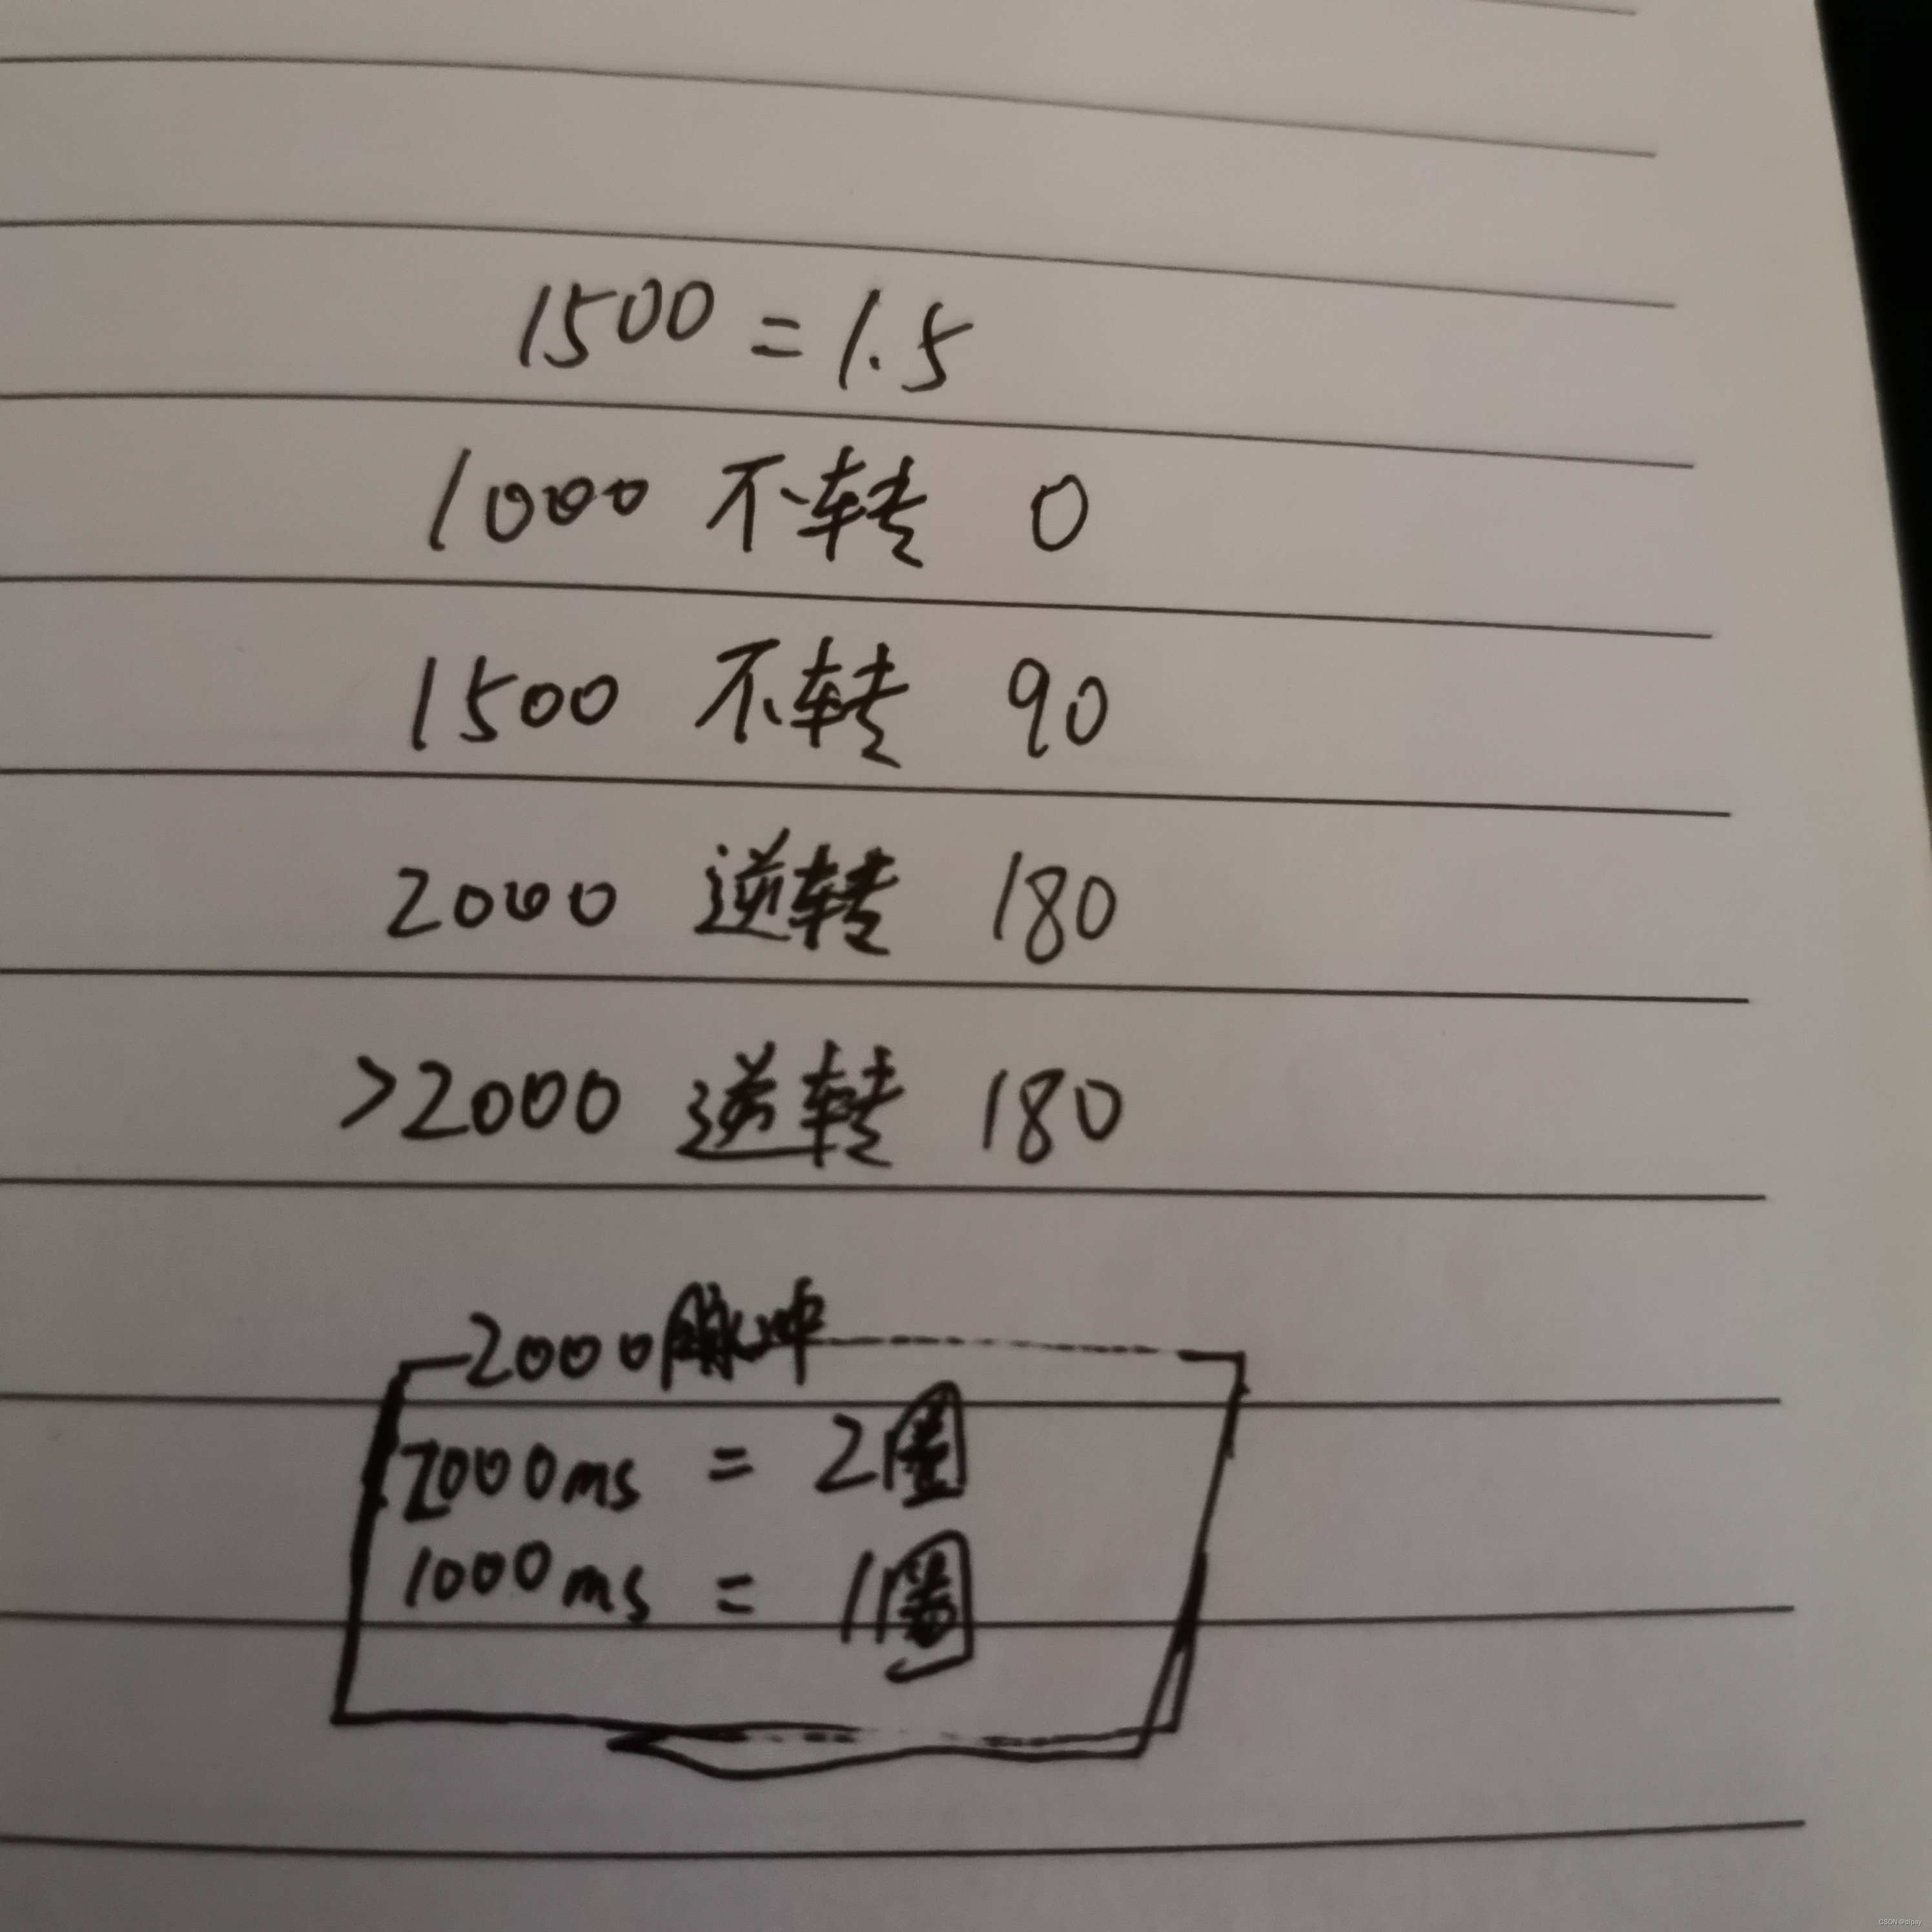 1500 = 1.5
1000 不转 0
1500 不转 90
2000 逆转 180
>2000 逆转 180
2000脉冲
2000ms = 2圈
1000ms = 1圈
CSDN @dlpay